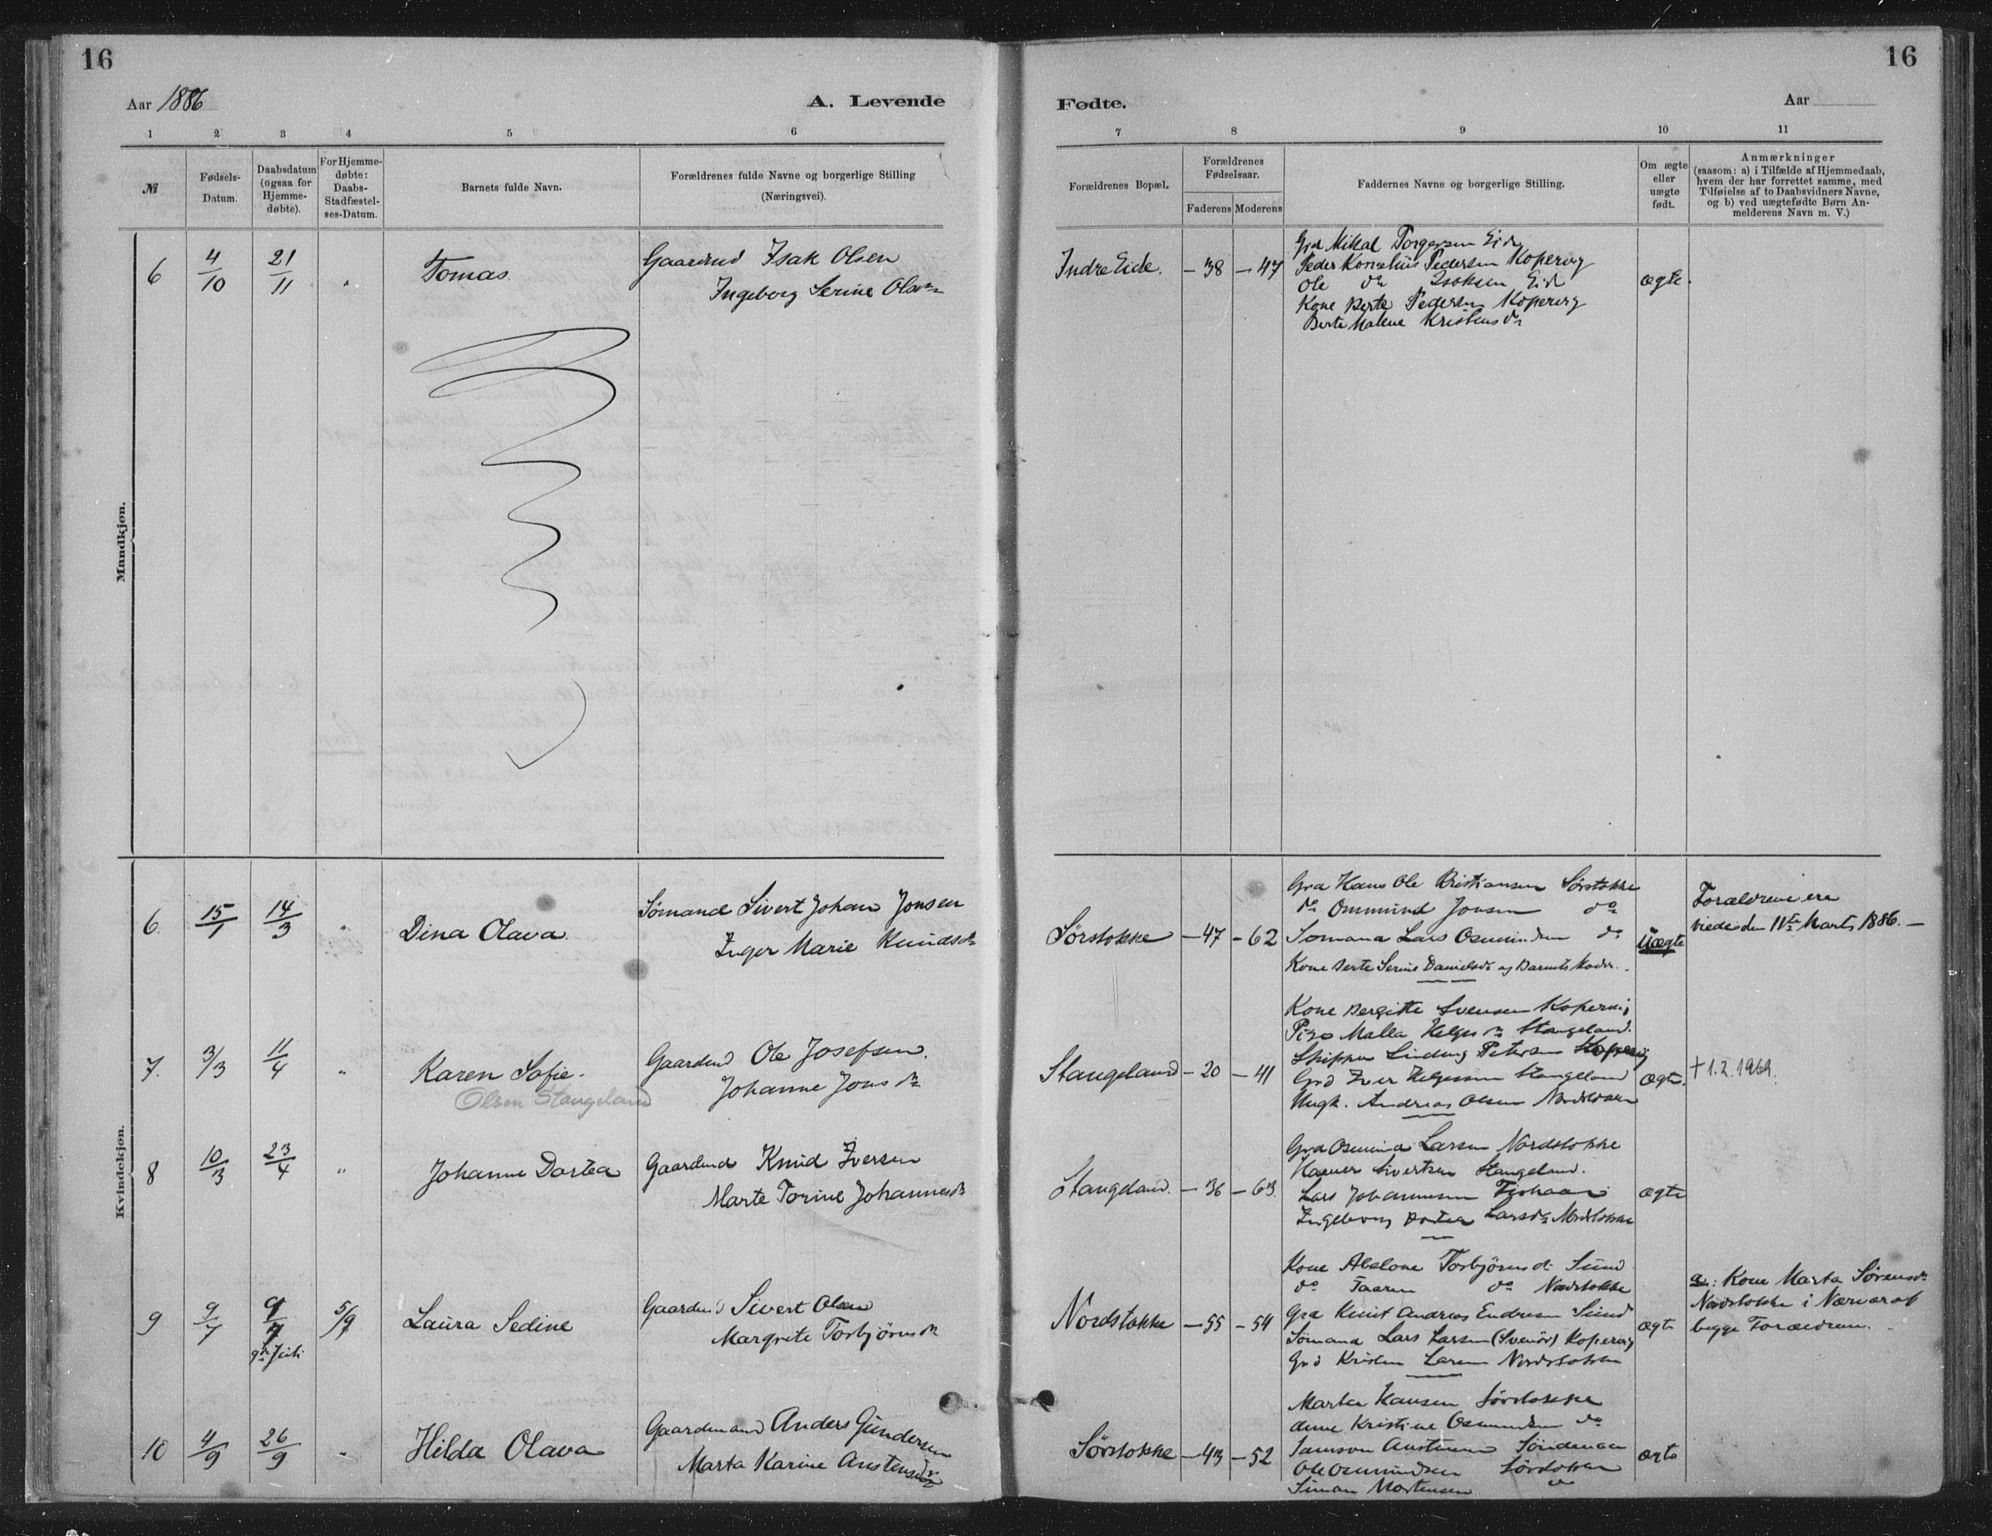 16
16
Aar 1886
A. Levende
Fødte.
Aar
1 2 3 4 5 6 7 8 9 10 11
№
Fødsels-
Datum.
Daabsdatum
(ogsaa for
Hjemme-
døbte).
For Hjemme-
døbte:
Daabs-
Stadfæstel-
ses-Datum.
Barnets fulde Navn.
Forældrenes fulde Navne og borgerlige Stilling
(Næringsvei).
Forældrenes Bopæl.
Forældrenes
Fødselsaar.
Faderens Moderens
Faddernes Navne og borgerlige Stilling.
Om ægte
eller
uægte
født.
Anmærkninger
(saasom: a) i Tilfælde af Hjemmedaab,
hvem der har forrettet samme, med
Tilføielse af to Daabsvidners Navne,
og b) ved uægtefødte Børn An-
melderens Navn m. V.)
Mandkjøn.
6 4/10 21/11 " Tomas.
Gaardmd Isak Olsen
Ingeborg Serine Olsdr
Indre Eide. — 38 — 47
Grd Mikal Torgersen Eid
Peder Kornelius Pedersen Kopervig
Ole do Isaksen Eid
Kone Berte Pedersen Kopervig
Berte Malene Kristensdr
ægte.
Kvindekjøn.
6. 15/1 14/3 " Dina Olava.
Sømand Sivert Johan Jonsen
Inger Marie Knudsdr
Sørstokke — 47 — 62
Grd Hans Ole Kristiansen Sørstokke
do Ommund Jonsen do
Sømand Lars Osmundsen do
Kone Berte Serine Danielsdr og Barnets Moder.
Uægte
Forældrene ere
viede den 11te Marts 1886. —
7. 3/3 11/4 " Karen Sofie.
Olsen Stangeland
Gaardmd Ole Josefsen.
Johanne Jonsdr
Stangeland — 20 — 41
Kone Bergitte Svensen Kopervig
Pige Malla Helgesdr Stangeland.
Skipper Lindtvig Petersen Kopervig
Grd Iver Helgesen Stangeland
Ungk. Andreas Olsen
Ægte.
† 1.2.1969.
8 10/3 23/4 " Johanne Dortea
Gaardmd Knud Iversen
Marte Torine Johannesdr
Stangeland. — 36 — 63.
Grd Osmund Larsen Nordstokke
Sivertsen Stangeland.
Lars Johannesen
Ingeborg Dortea Larsdr Nordstokke
ægte
9 9/7 9/7 5/9 Laura Sedine
9de Juli
Gaardmd Sivert Olsen
Margrete Torbjørnsdr
Nordstokke — 55 — 54
Kone Abelone Torbjørnsd. Sund
do Taaren do Nordstokke
Grd Knut Andreas Endresen Sund
Sømand Lars Larsen (Svenør) Kopervig
Grd Kristen Larsen Nordstokke
ægte
a: Kone Marta Sørensdr
Nordstokke i Nærvær af
begge Forældrene.
10 4/9 26/9 " Hilda Olava
Gaardmand Anders Gundersen
Marta Karine Anstensdr
Sørstokke — 43 — 52
Martha Hansen Sørstokke
Anne Kristine Osmundsen do
Samson Austensen
Ole Osmundsen Sørstokke
Simon Mortensen do
ægte